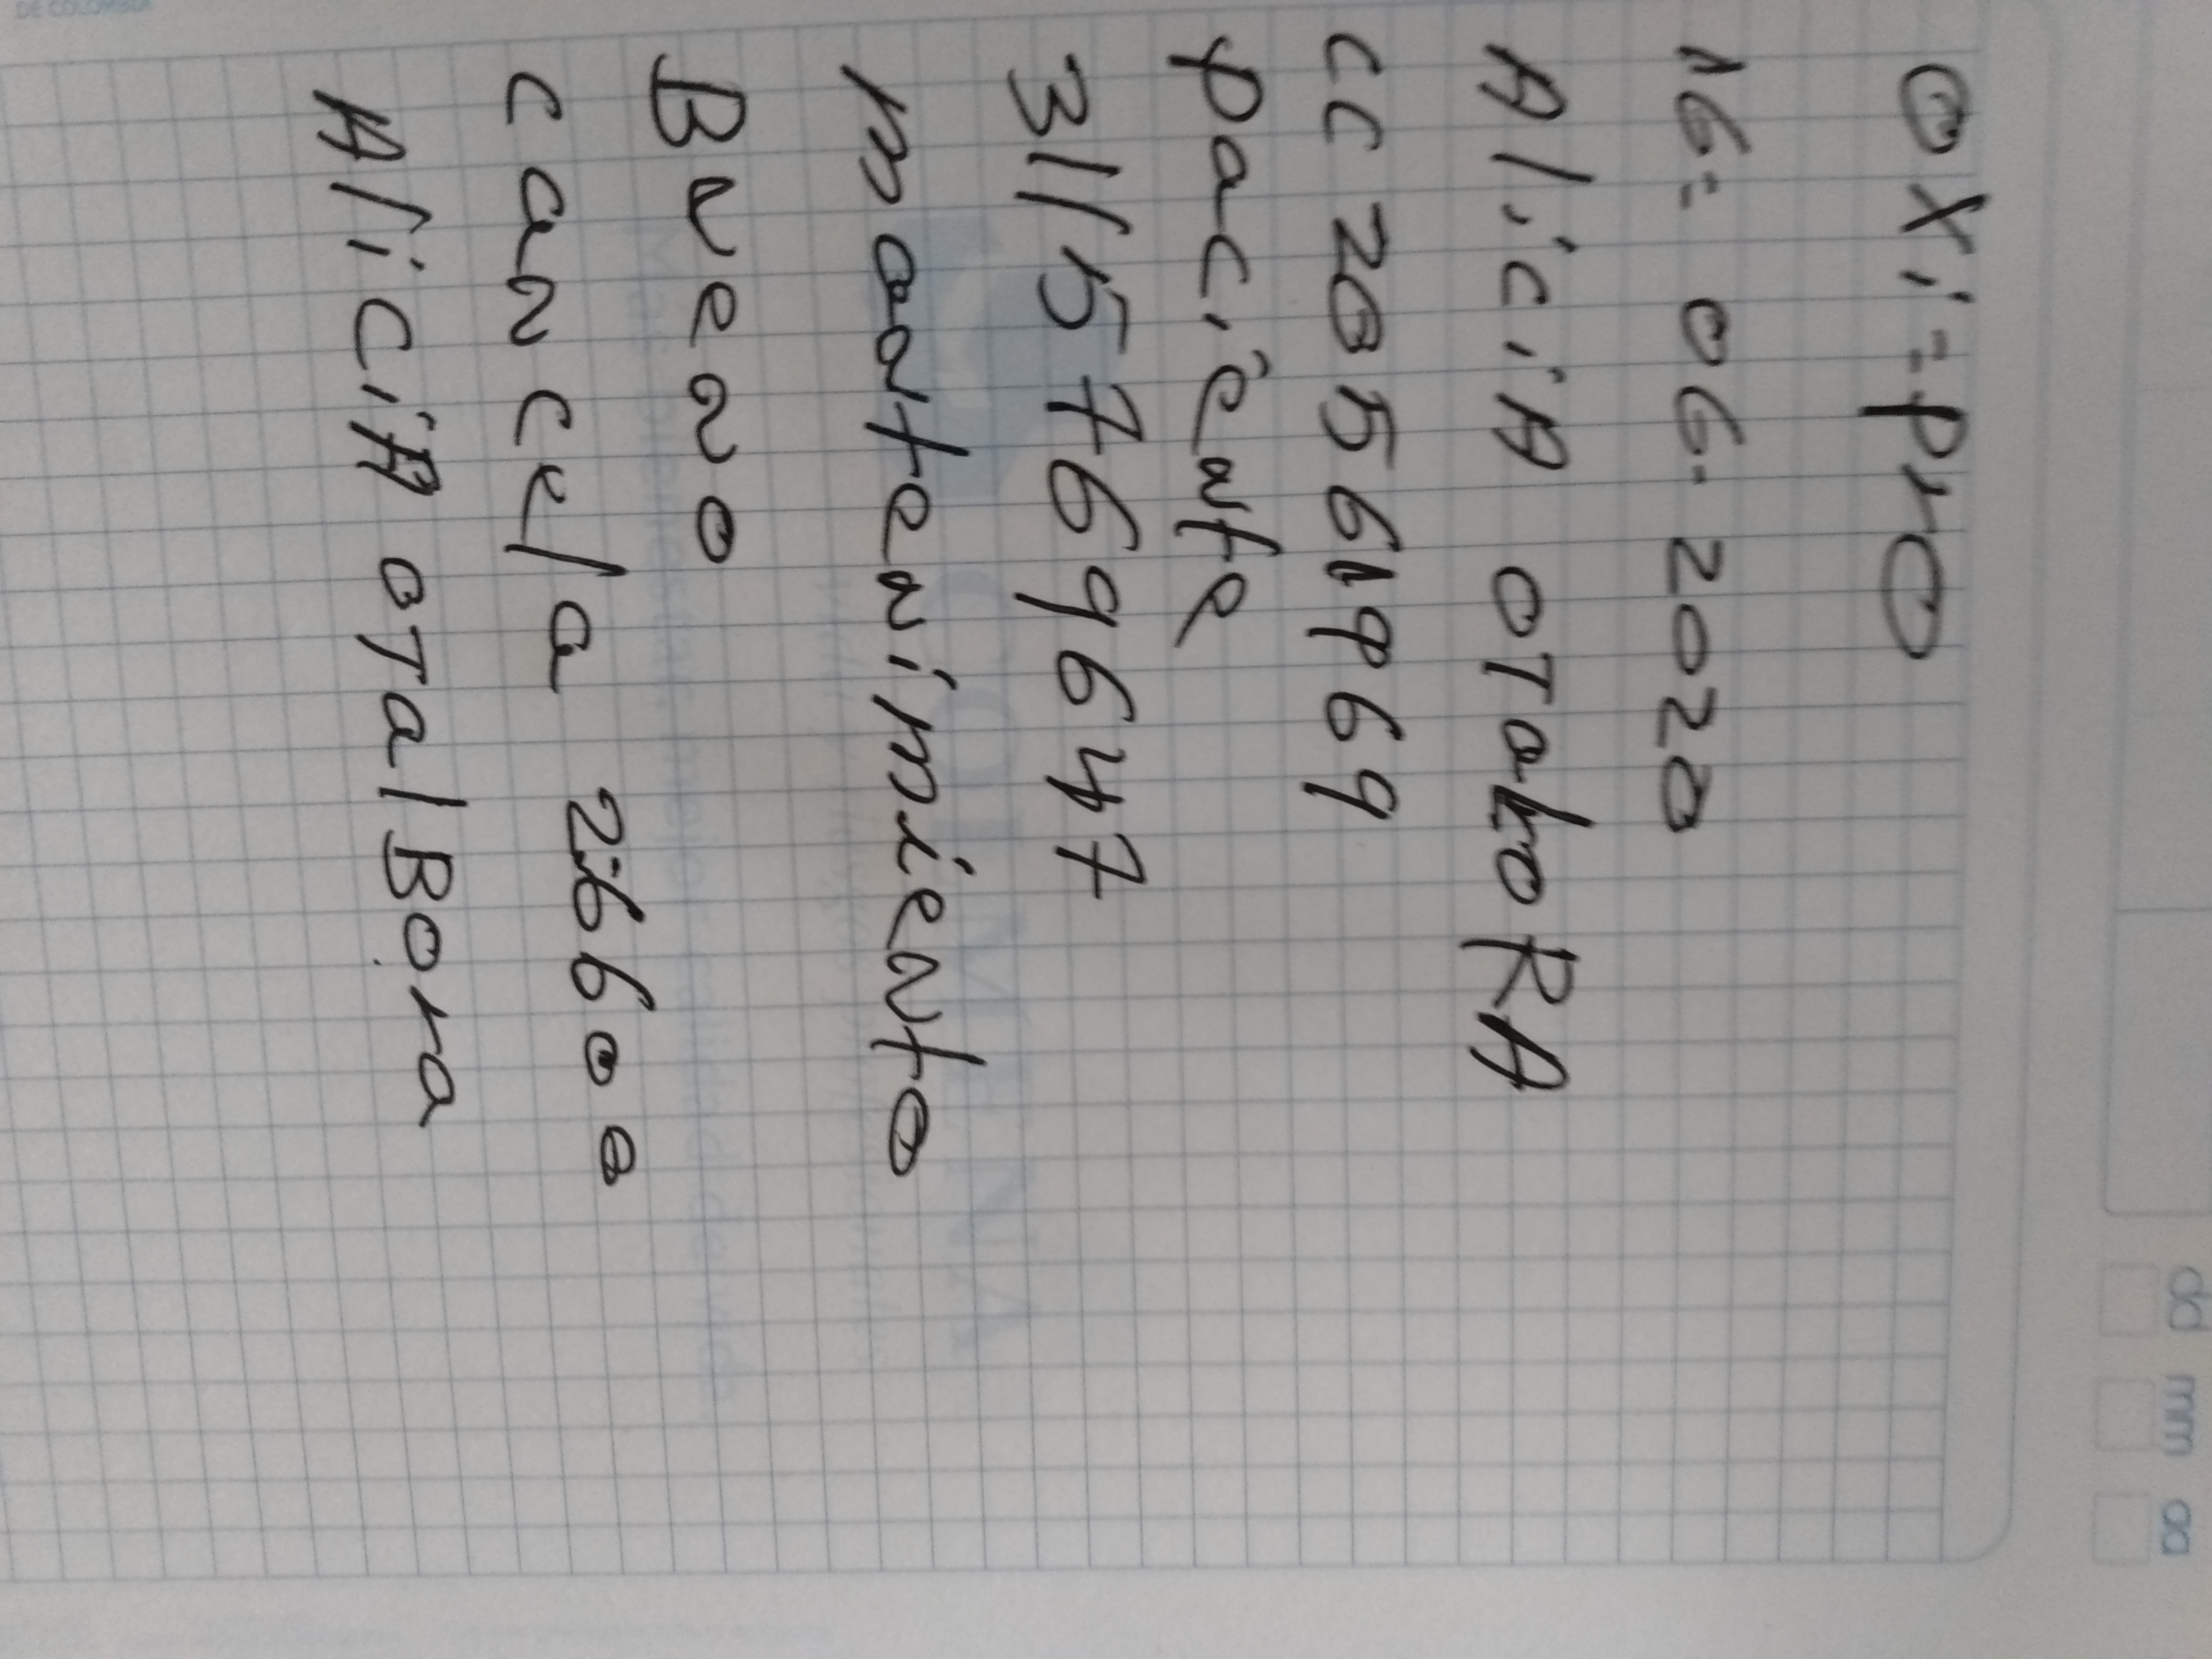 OXi-Pro
16-06-2020
AliciA OTalvoRA
CC 20561969
paciente
3115769647
mantenimiento
Bueno
cancela 26600
AliciA OTalBora
DE COLOMBIA
dd mm aa
COLMENA